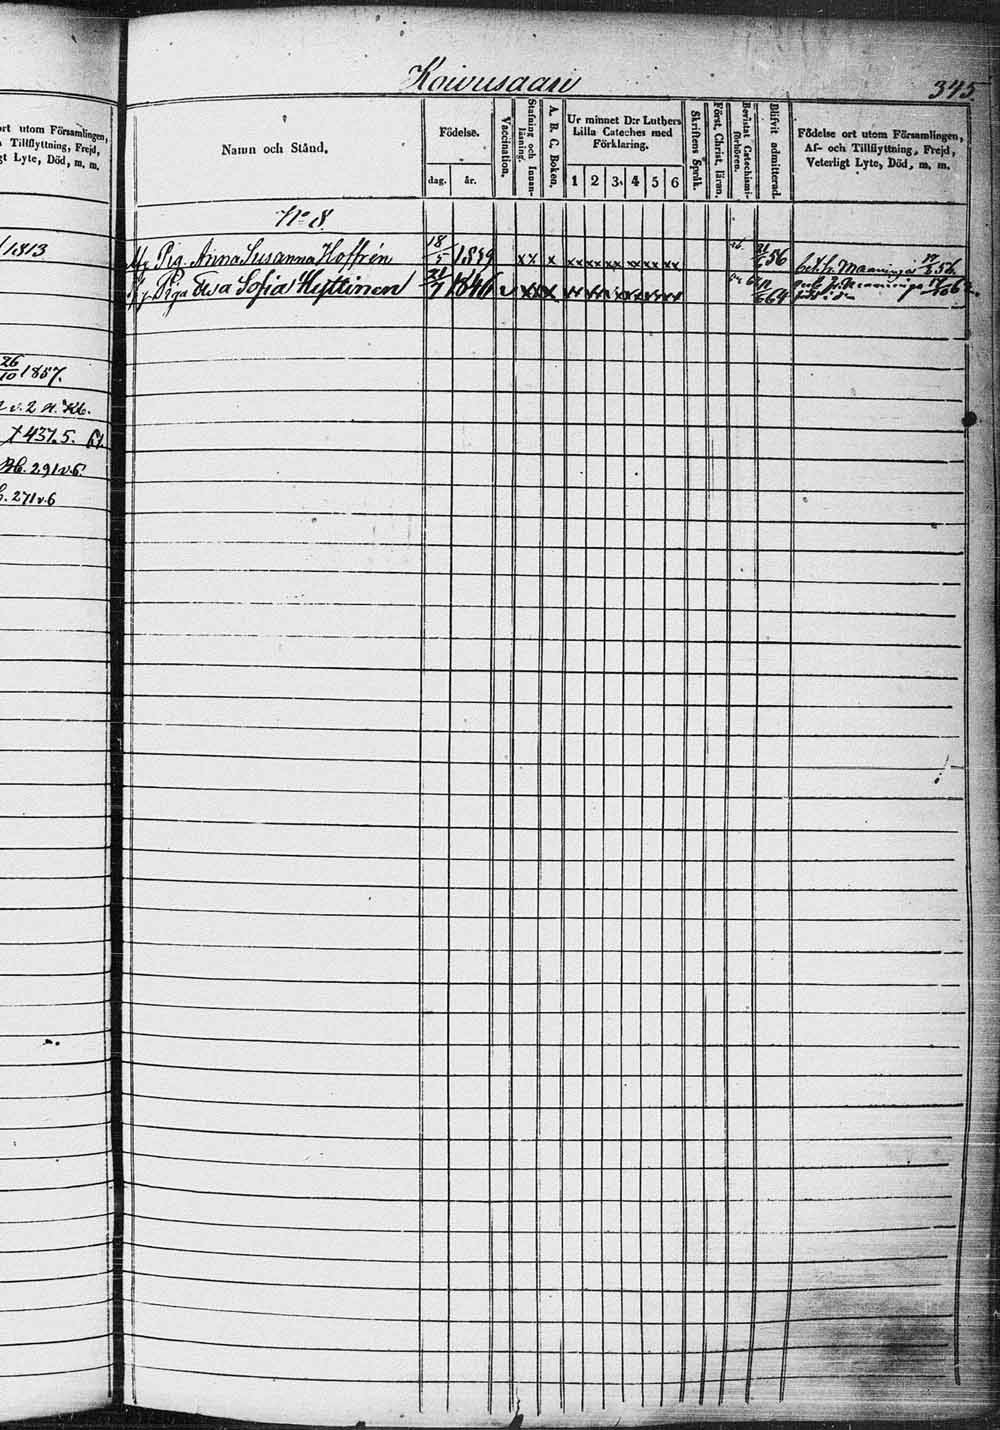 ort utom Församlingen,
Tillflyttning, Frejd,
Lyte, Död, m. m.
1813
26/10 1857.
v. 2 n. Kb.
† 437. 5. 61
Bb. 291 v. 6.
271 v. 6
Koivusaari
345
Namn och Stånd.
Födelse.
dag.
år.
Vaccination.
Stafning och Innan-
läsning.
A. B. C. Boken.
Ur minnet D:r Luthers
Lilla Cateches med
Förklaring.
1 2 3. 4 5 6
Skriftens Språk.
Först. Christ. läran.
Bevistat Catechismi-
förhören.
Blifvit admitterad.
Födelse ort utom Församlingen,
Af- och Tillflyttning, Frejd,
Veterligt Lyte, Död, m. m.
No 8
Pig. Anna Susanna Hoffrén 18/5 1839 xx x xx xx xx xx xx xx 56 Maaninga
Piga Elsa Sofia Hyttinen 1846 v xxx x xx xx xx xx xx xx 64 Maaninga